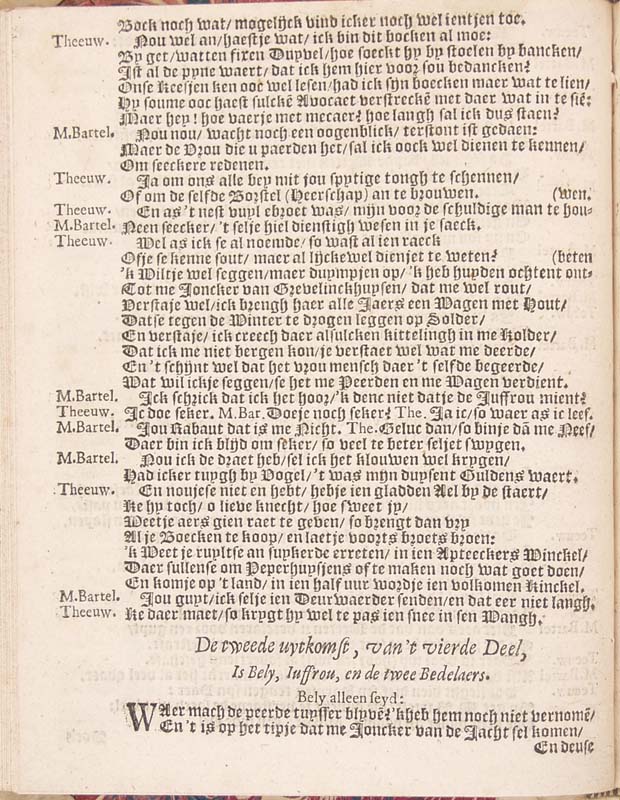 Bock noch wat/ mogelijck vind icker noch wel ientjen toe.
Theeuw. Nou wel an/haestje wat/ ick bin dit bocken al moe:
By get/watten fixen Duyvel/hoe soeckt hy by stoelen by bancken/
Ist al de pyne waert/ dat ick hem hier voor sou bedancken?
Onse Keesjen ken ooc wel lesen/had ick sijn boecken maer wat te lien/
Hy soume ooc haest sulckē Avocaet verstreckē met daer wat in te siē:
Maer hey! hoe vaerje met mecaer? hoe langh sal ick dus staen?
M.Bartel. Nou nou/ wacht noch een oogenblick/ terstont ist gedaen:
Maer de Vrou die u paerden het/sal ick oock wel dienen te kennen/
Om seeckere redenen.
Theeuw. Ja om ons alle bey mit jou spytige tongh te schennen/
Of om de selfde Borstel (Heerschap) an te brouwen. (wen.
Theeuw. En as't nest vuyl ebroet was/ mijn voor de schuldige man te hou-
M.Bartel. Neen seecker/ 't selje hiel dienstigh wesen in je saeck.
Theeuw. Wel as ick se al noemde/ so wast al ien raeck
Ofje se kenne sout/ maer al lijckewel dienjet te weten? (beten
'k Wiltje wel seggen/maer duympjen op/ 'k heb huyden ochtent ont-
Tot me Joncker van Grevelinckhuysen/ dat me wel rout/
Verstaje wel/ick brengh haer alle Jaers een Wagen met Hout/
Datse tegen de Winter te drogen leggen op Solder/
En verstaje/ ick creech daer alsulcken kittelingh in me Kolder/
Dat ick me niet bergen kon/je verstaet wel wat me deerde/
En 't schijnt wel dat het vrou mensch daer 't selfde begeerde/
Wat wil ickje seggen/se het me Peerden en me Wagen verdient.
M.Bartel. Ick schrick dat ick het hoor/'k denc niet datje de Juffrou mient?
Theeuw. Ic doe seker. M.Bar. Doeje noch seker? The. Ja ic/so waer as ic leef.
M.Bartel. Jou Rabaut dat is me Nicht. The. Geluc dan/so binje dā me Neef/
Daer bin ick blijd om seker/ so veel te beter seljet swygen.
M.Bartel. Nou ick de draet heb/sel ick het klouwen wel krygen/
Had icker tuygh by Vogel/'t was mijn duysent Guldens waert.
Theeuw. En noujese niet en hebt/ hebje ien gladden Ael by de staert/
Ke hy toch/ o lieve knecht/ hoe sweet jy/
Weetje aers gien raet te geven/ so brengt dan vry
Al je Boecken te koop/ en laetje voorts broets broen:
'k Weet je rupltse an suykerde erreten/ in ien Apteeckers Winckel/
Daer sullense om Peperhuysjens of te maken noch wat goet doen/
En komje op 't land/ in ien half uur wordje ien volkomen Kinckel.
M.Bartel. Jou guyt/ick selje ien Deurwaerder senden/en dat eer niet langh.
Theeuw. Ke daer maet/so krygt hy wel te pas ien snee in sen Wangh.
De tweede uytkomst, van't vierde Deel,
Is Bely, Iuffrou, en de twee Bedelaers.
Bely alleen seyd:
WAer mach de peerde tuysser blyvē?'kheb hem noch niet vernomē/
En 't is op het tipje dat me Joncker van de Jacht sel komen/
En deuse